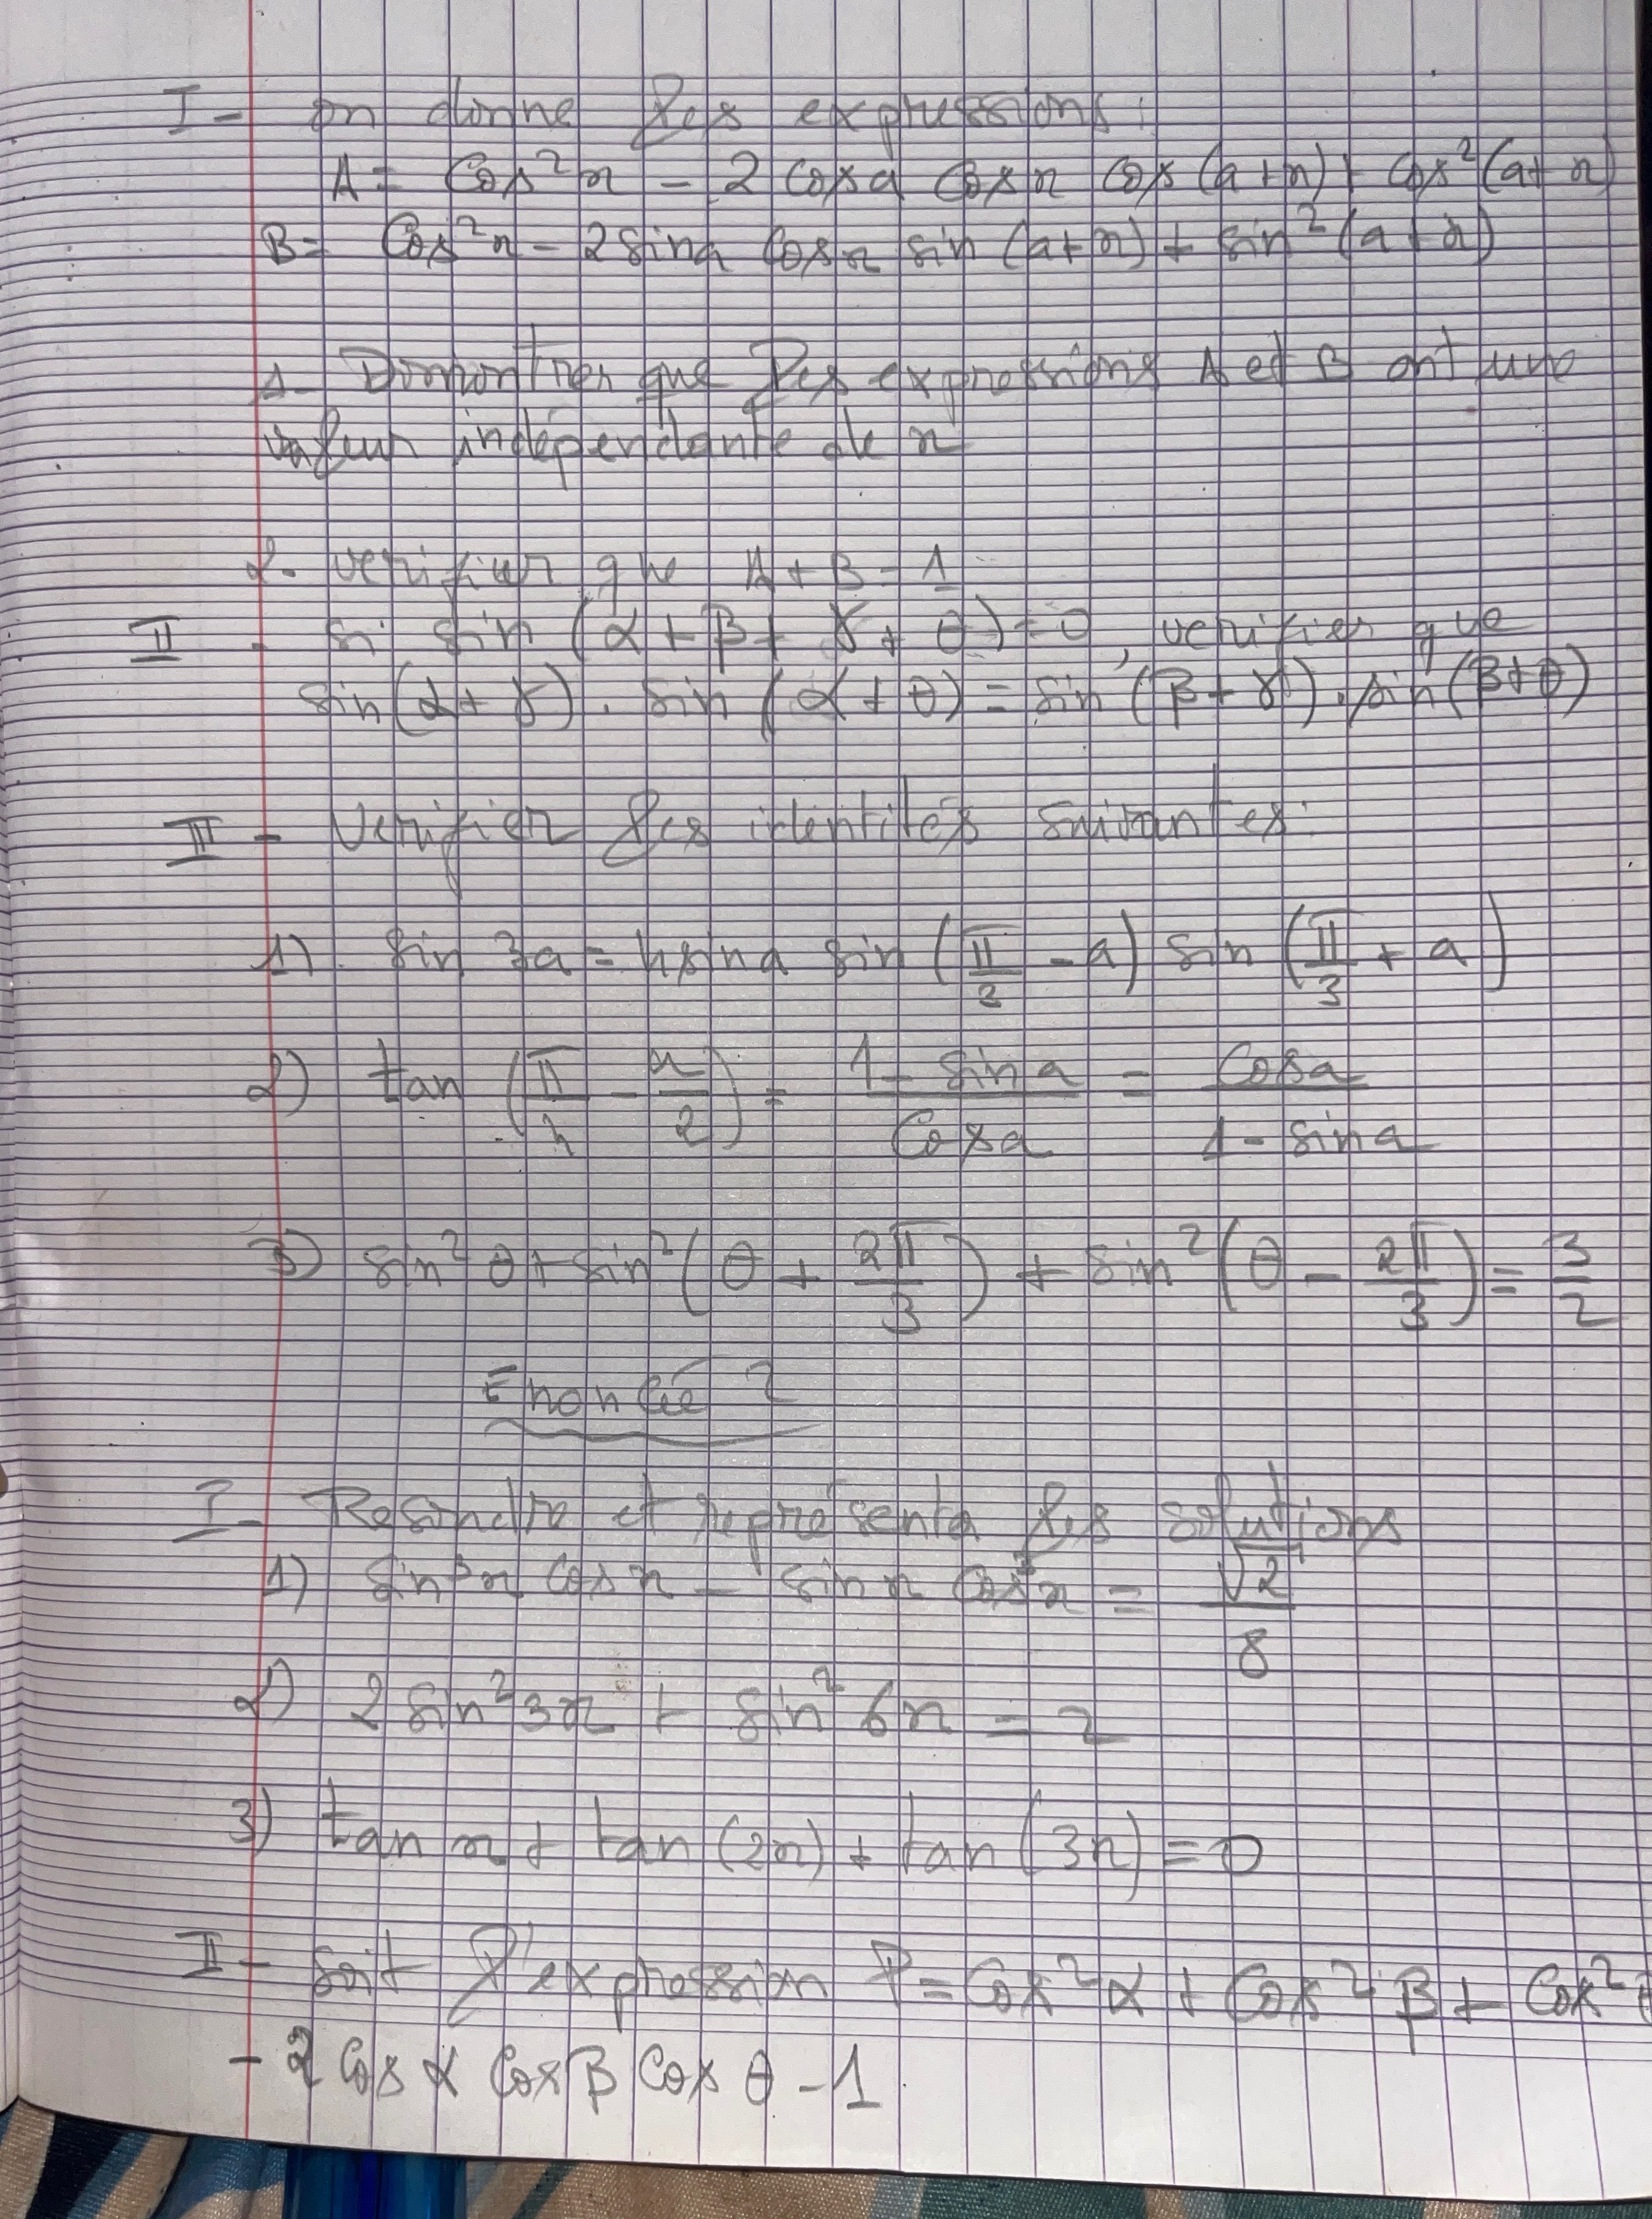 I - on donne les expressions :
A = Cos²x - 2 cosa cosx cos(a+x) + cos²(a+x)
B = Cos²x - 2 sina cosx sin(a+x) + sin²(a+x)
1- Démontrer que les expressions A et B ont une
valeur indépendante de x
2- verifier que A + B = 1
II - si sin(α + β + γ + θ) = 0, verifier que
sin(α + γ) . sin(α + θ) = sin(β + γ) . sin(β + θ)
III - Verifier les identités suivantes :
1) sin 3a = 4 sin a sin(π/3 - a) sin(π/3 + a)
2) tan(π/4 - a/2) = 1 - sin a / Cos a = Cos a / 1 - sin a
3) sin²θ + sin²(θ + 2π/3) + sin²(θ - 2π/3) = 3/2
Enoncé 2
I - Resoudre et représenter les solutions
1) sin³x cosx - sinx cos³x = √2/8
2) 2 sin²3x + sin²6x = 2
3) tan x + tan(2x) + tan(3x) = 0
II - soit l'expression P = Cos²α + Cos²β + Cos²θ
- 2 cos α cos β cos θ - 1